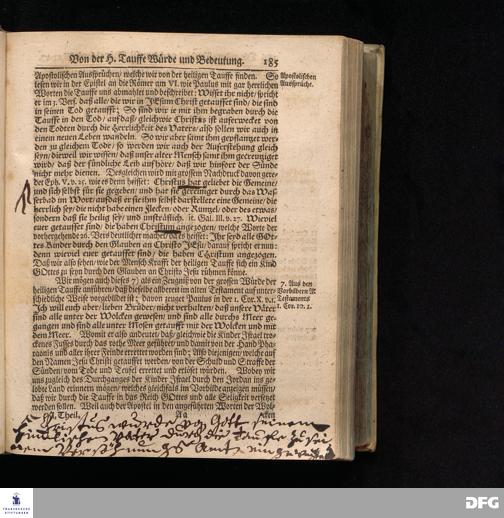 Von der H. Tauffe Würde und Bedeutung. 185
Apostolischen Aussprüchen/ welche wir von der heiligen Tauffe finden. So
lesen wir in der Epistel an die Römer am VI. wie Paulus mit gar herrlichen
Worten die Tauffe uns abmahlet und beschreibet: Wisset ihr nicht/ spricht
er im 3. Vers. daß alle/ die wir in JEsum Christ getauffet sind/ die sind
in seinen Tod getaufft; So sind wir je mit ihm begraben durch die
Tauffe in den Tod/ auf daß/ gleichwie Christus ist auferwecket von
den Todten durch die Herrlichkeit des Vaters/ also sollen wir auch in
einem neuen Leben wandeln. So wir aber samt ihm gepflantzet wer-
den zu gleichem Tode/ so werden wir auch der Auferstehung gleich
seyn/ dieweil wir wissen/ daß unser alter Mensch samt ihm gecreutziget
wird/ daß der sündliche Leib aufhöre/ daß wir hinfort der Sünde
nicht mehr dienen. Desgleichen wird mit grossem Nachdruck davon gere-
det Eph. V. v. 25. wie es denn heisset: Christus hat geliebet die Gemeine/
und sich selbst für sie gegeben/ und hat sie gereiniget durch das Was-
serbad im Wort/ auf daß er sie ihm selbst darstellete eine Gemeine/ die
herrlich sey/ die nicht habe einen Flecken/ oder Runtzel/ oder des etwas/
sondern daß sie heilig sey/ und unsträflich. it. Gal. III. v. 27. Wieviel
euer getauffet sind/ die haben Christum angezogen/ welche Worte der
vorhergehende 26. Vers deutlicher machet/ da es heisset: Ihr seyd alle GOt-
tes Kinder durch den Glauben an Christo JEsu/ darauf spricht er nun:
denn wieviel euer getauffet sind/ die haben Christum angezogen.
Daß wir also sehen/ wie der Mensch Krafft der heiligen Tauffe sich ein Kind
GOttes zu seyn durch den Glauben an Christo Jesu rühmen könne.
Wir mögen auch dieses 7) als ein Zeugniß von der grossen Würde der
heiligen Tauffe anführen/ daß dieselbe albereit im alten Testament auf unter-
schiedliche Weise vorgebildet ist; davon zeuget Paulus in der 1. Cor. X. v. 1.
Ich will euch aber/ lieben Brüder/ nicht verhalten/ daß unsere Väter
sind alle unter der Wolcken gewesen/ und sind alle durchs Meer ge-
gangen/ und sind alle unter Mosen getaufft mit der Wolcken und mit
dem Meer. Womit er also andeutet/ daß/ gleichwie die Kinder Israel tro-
ckenes Fusses durch das rothe Meer geführet/ und damit von der Hand Pha-
raonis und aller ihrer Feinde errettet worden sind; Also diejenigen/ welche auf
den Namen Jesu Christi getauffet werden/ von der Schuld und Straffe der
Sünden/ vom Tode und Teufel errettet und erlöset würden. Wobey wir
uns zugleich des Durchganges der Kinder Israel durch den Jordan ins ge-
lobte Land erinnern mögen/ welches gleichfals im Vorbilde anzeigen müssen/
daß wir durch die Tauffe in das Reich GOttes und alle Seligkeit versetzet
worden sollen. Weil auch der Apostel in den angeführten Worten der Wol-
Theil. Aa cken
Apostolischen
Aussprüche.
7. Aus den
Vorbildern A.
Testaments
1. Cor. 10. 1.
Christus wurde von Gott seinem
durch die Tauffe
DFG